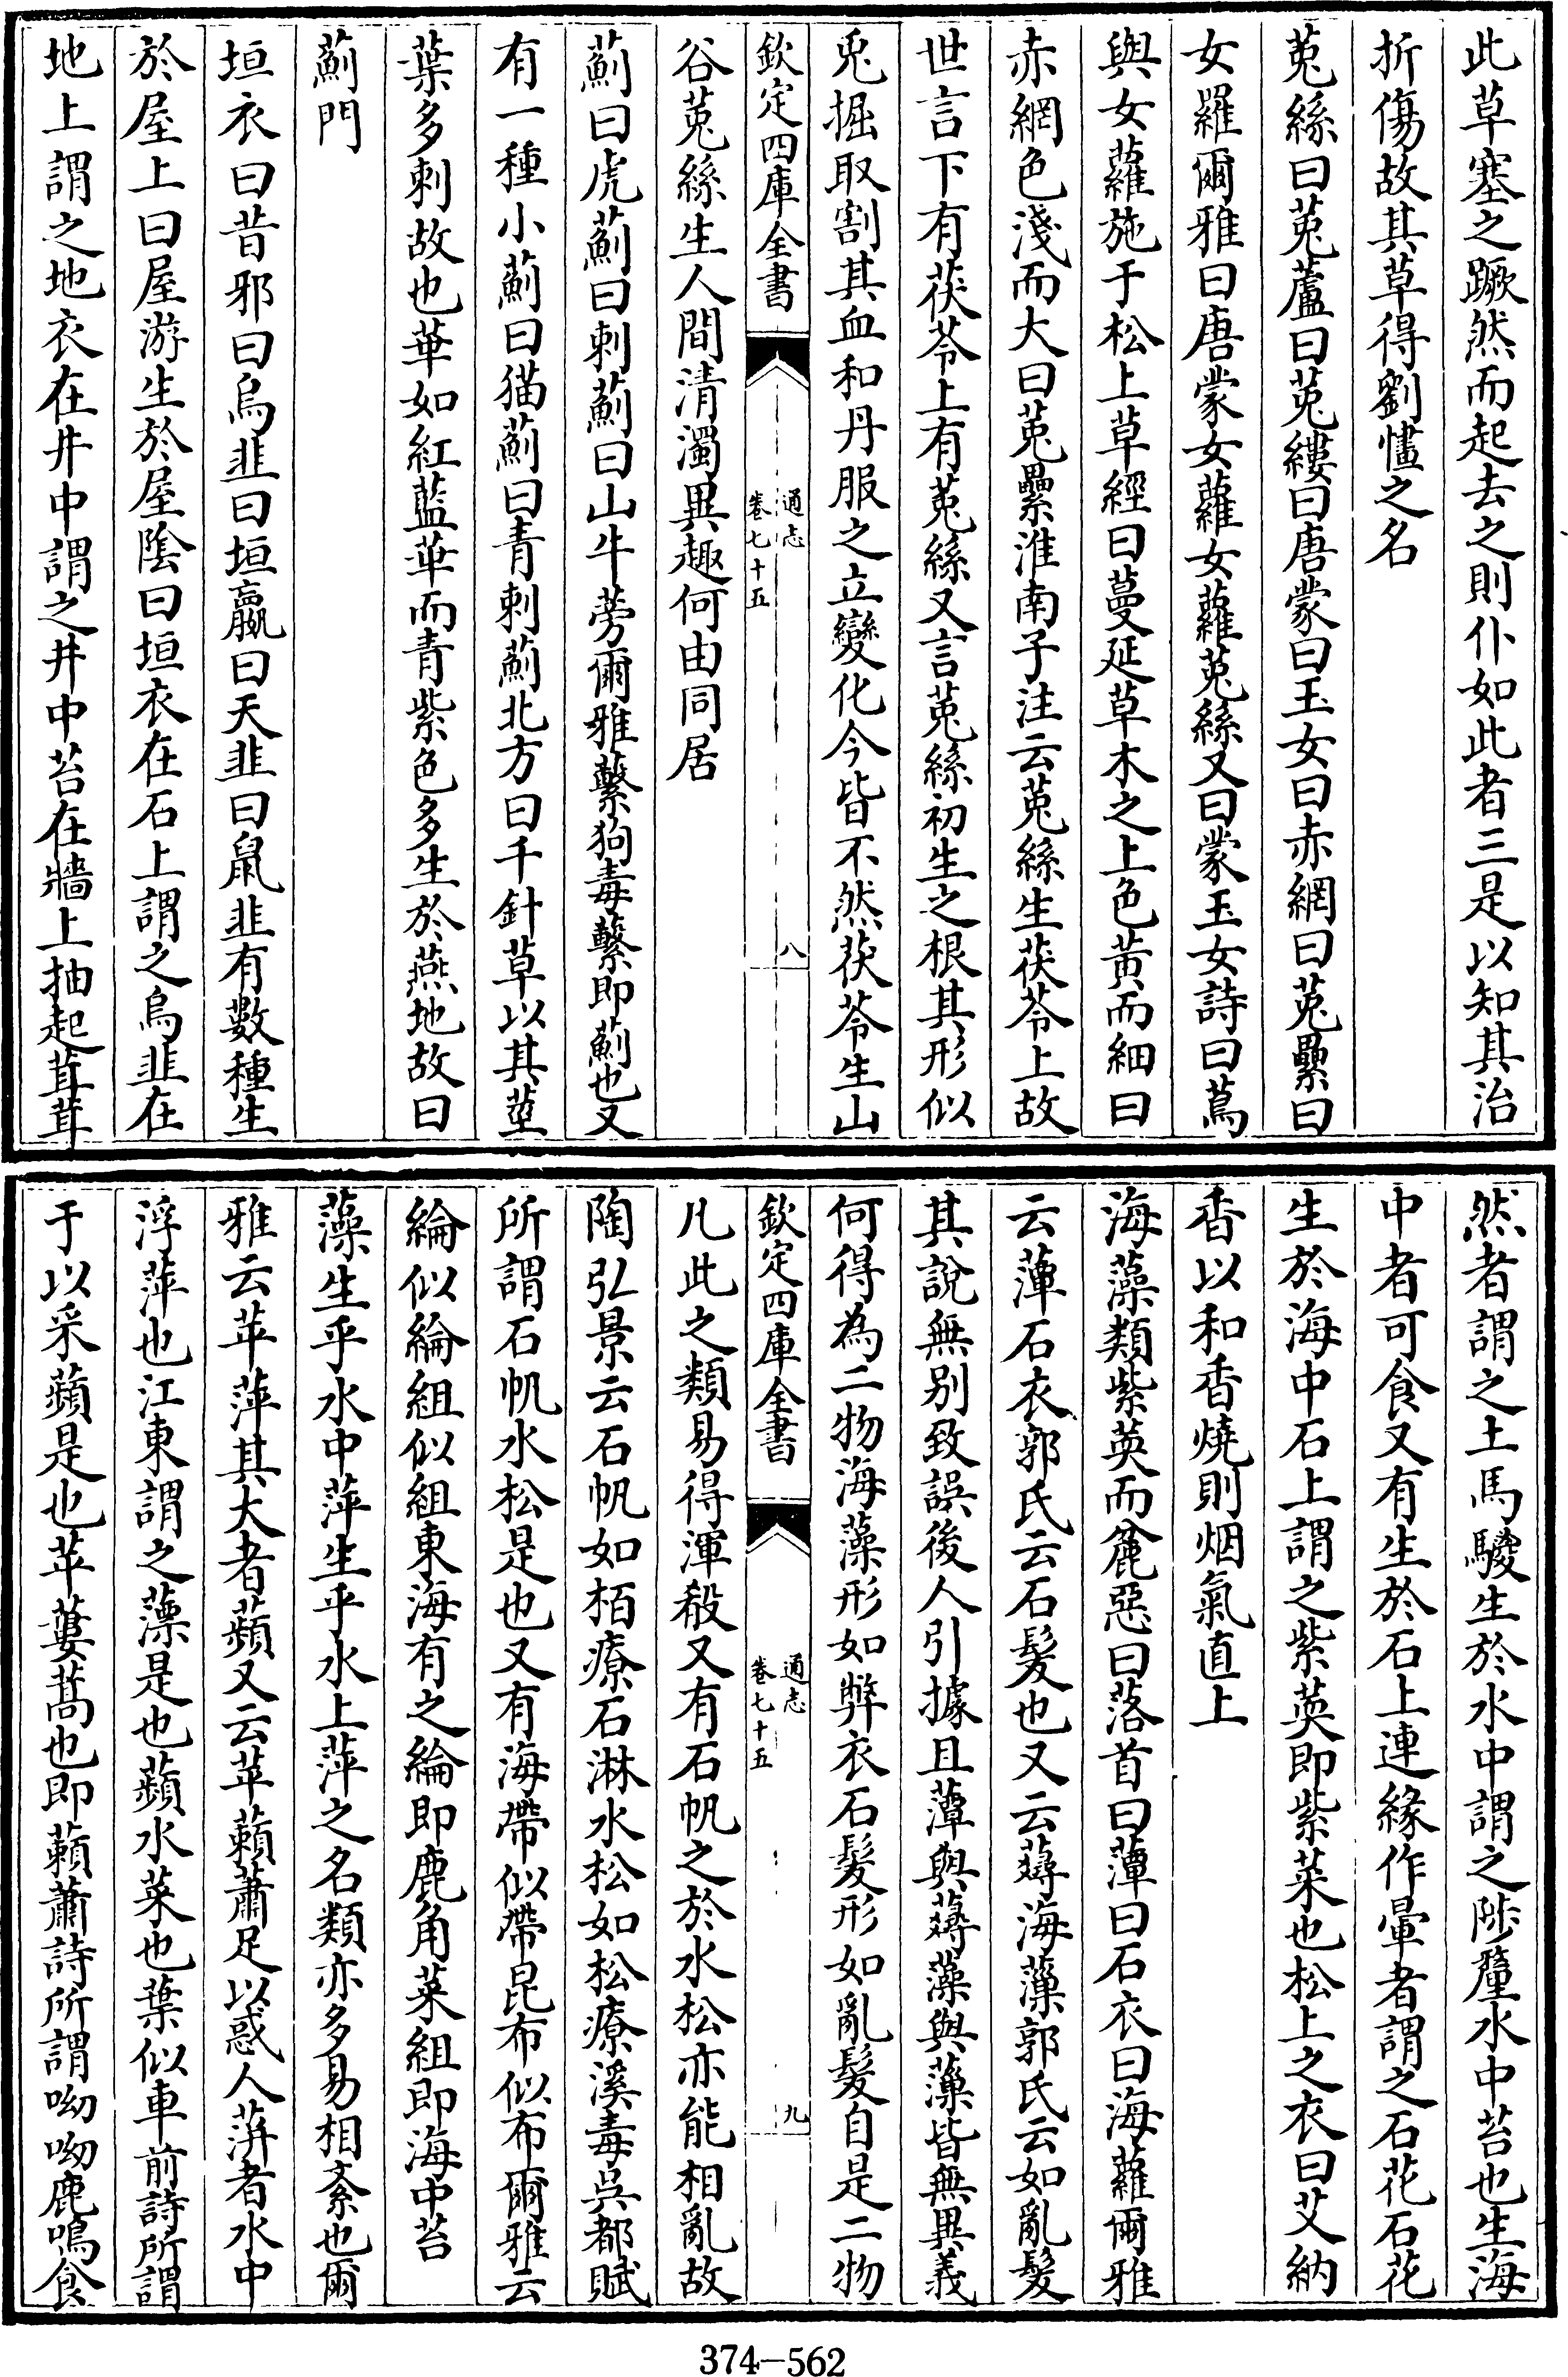 此草塞之蹶然而起去之則仆如此者三是以知其治
折傷故其草得劉㦎之名
莵絲曰莵蘆曰莵縷曰唐蒙曰玉女曰赤網曰莵纍曰
女羅爾雅曰唐蒙女蘿女蘿莵絲又曰蒙玉女詩曰蔦
與女蘿施于松上草經曰蔓延草木之上色黃而細曰
赤網色淺而大曰莵纍淮南子注云莵絲生茯苓上故
世言下有茯苓上有莵絲又言莵絲初生之根其形似
兎掘取割其血和丹服之立變化今皆不然茯苓生山
欽定四庫全書
通志
卷七十五
八
谷莵絲生人間清濁異趣何由同居
薊曰虎薊曰刺薊曰山牛蒡爾雅蘩狗毒蘩即薊也又
有一種小薊曰猫薊曰青刺薊北方曰千針草以其莖
葉多刺故也華如紅藍華而青紫色多生於燕地故曰
薊門
垣衣曰昔邪曰烏韭曰垣嬴曰天韭曰鼠韭有數種生
於屋上曰屋游生於屋隂曰垣衣在石上謂之烏韭在
地上謂之地衣在井中謂之井中苔在牆上抽起茸茸
然者謂之土馬騣生於水中謂之陟釐水中苔也生海
中者可食又有生於石上連緣作暈者謂之石花石花
生於海中石上謂之紫英即紫菜也松上之衣曰艾納
香以和香燒則烟氣直上
海藻類紫英而麁惡曰落首曰藫曰石衣曰海蘿爾雅
云藫石衣郭氏云石髮也又云䕭海藻郭氏云如亂髮
其說無别致誤後人引據且藫與䕭藻與薻皆無異義
何得為二物海藻形如弊衣石髮形如亂髮自是二物
欽定四庫全書
通志
卷七十五
九
凡此之類易得渾殽又有石帆之於水松亦能相亂故
陶弘景云石帆如栢療石淋水松如松療溪毒吳都賦
所謂石帆水松是也又有海帶似帶昆布似布爾雅云
綸似綸組似組東海有之綸即鹿角菜組即海中苔
藻生乎水中萍生乎水上萍之名類亦多易相紊也爾
雅云苹萍其大者蘋又云苹藾蕭足以惑人蓱者水中
浮萍也江東謂之薸是也蘋水菜也葉似車前詩所謂
于以采蘋是也苹蔞蒿也即藾蕭詩所謂呦呦鹿鳴食
374-562